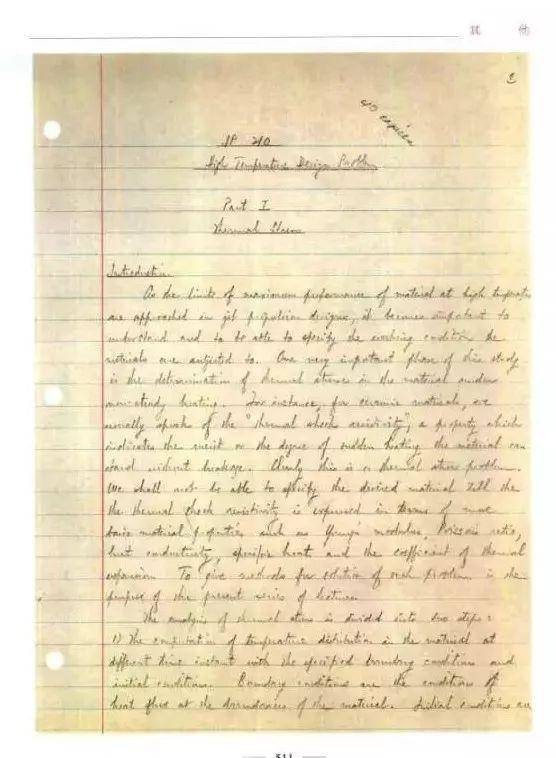 其 他
2
40 copies
JP 210
High Temperature Design Problem
Part I
Thermal Stress
Introduction
As the limits of maximum performance of material at high temperature
are approached in jet propulsion designs, it becomes important to
understand and to be able to specify the working condition the
materials are subjected to. One very important phase of this study
is the determination of thermal stress in the material under
non-steady heating. For instance, for ceramic materials, we
usually speak of the "thermal shock resistivity", a property which
indicates the merit or the degree of sudden heating the material can
stand without breakage. Clearly this is a thermal stress problem.
We shall not be able to specify the desired material till the
the thermal shock resistivity is expressed in terms of more
basic material properties such as Young's modulus, Poisson's ratio,
heat conductivity, specific heat and the coefficient of thermal
expansion. To give methods for solution of such problem is the
purpose of the present series of lectures.
The analysis of thermal stress is divided into two steps:
1) The computation of temperature distribution in the material at
different time instant with the specified boundary conditions and
initial conditions. Boundary conditions are the conditions of
heat flux at the boundaries of the material. Initial conditions are
511